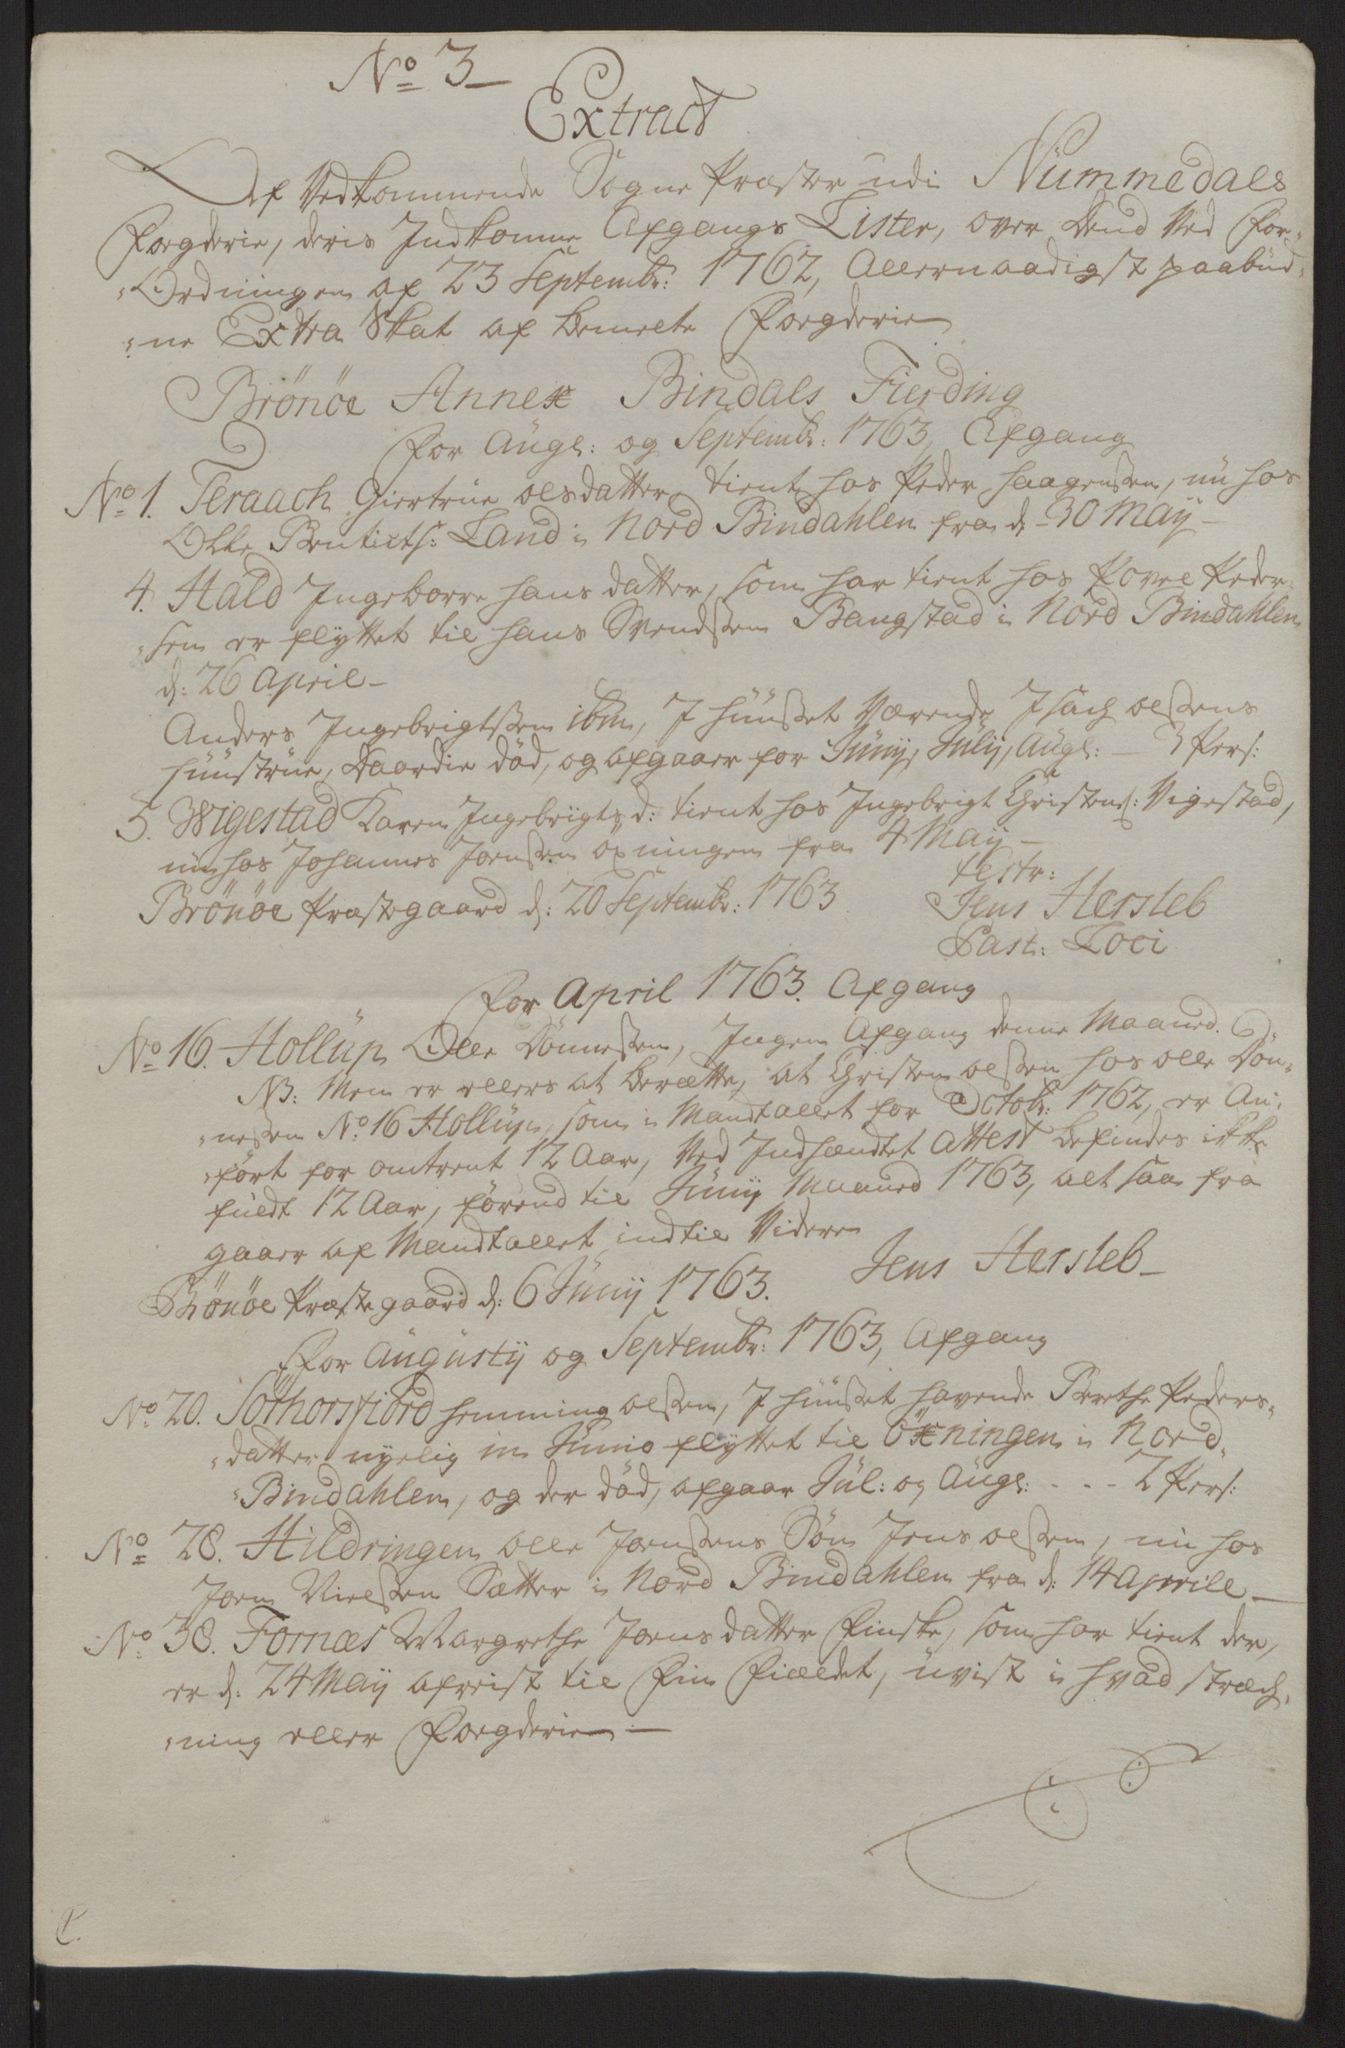 No 3
Extract
Af Vedkommende Sogne Præster udi Nummedals
Foegderie, deris Indkomne Afgangs Lister, over dend Ved For-
-Ordningen af 23 Septembr: 1762, Allernaadigst paabud-
-ne Extra Skat af bemelte Foegderie
Brönöe Annex Bindals Fierding
for Augl: og Septembr: 1763, Afgang
No 1. Teraach Giertrue olsdatter tient hos Peder Haagenssen, nu hos
Olle Benticts: Land i Nord Bindahlen fra d: 30 May -
4. Hald Ingeborre Hansdatter, som har tient hos Povel Peder-
-sen er flyttet til Hans Svendssen Bangstad i Nord Bindahlen
d: 26 April -
Anders Ingebrigtssen ibm, I huusset Værende Isach olssens
huustrue, Daarlie död, og afgaaer for Junij, Julij, Augl: - 3 Pers:
5. Wigestad Karen Ingebrigts d: tient hos Ingebrigt Christens: Vigestad,
nu hos Johannes Jonssen öxningen fra 4 May -
testr:
Brönöe Præstegaard d: 20 Septembr: 1763
Jens Hersleb
Past: Loci
for April 1763. Afgang
No 16. Hollup Olle Tönnessen, Ingen Afgang denne Maaned.
NB: Men er ellers at berætte, at Christen olssen hos olle Tön-
-nessen No 16 Hollup, som i Mandtallet for Octobr: 1762, er An-
-fört for omtrent 12 Aar, Ved Indhændtet Attest befindes ikke
fuldt 12 Aar, förend til Junij Maaned 1763, alt saa fra
gaaer af Mandtallet indtil Videre
Brönöe Præstegaard d: 6 Junij 1763. Jens Hersleb -
for Augustij og Septembr: 1763, Afgang
No 20. Sörhorsfiord Henning olssen, I huusset havende Berethe Peders-
-datter nyelig in Junio flyttet til Öxningen i Nord
-Bindahlen, og der död, afgaar Jul: og Augl: - - - 2 Pers:
No 28. Hildringen olle Jonssens Sön Jens olssen, nu hos
Joen Nielssen Sætter i Nord Bindahlen fra d: 14 Aprill -
No 38. Fornæs Margrethe Joensdatter Finske, som har tient der,
er d: 24 May afreist til Fin Fieldet, uvist i hvad stræch-
-ning eller Foegderie -